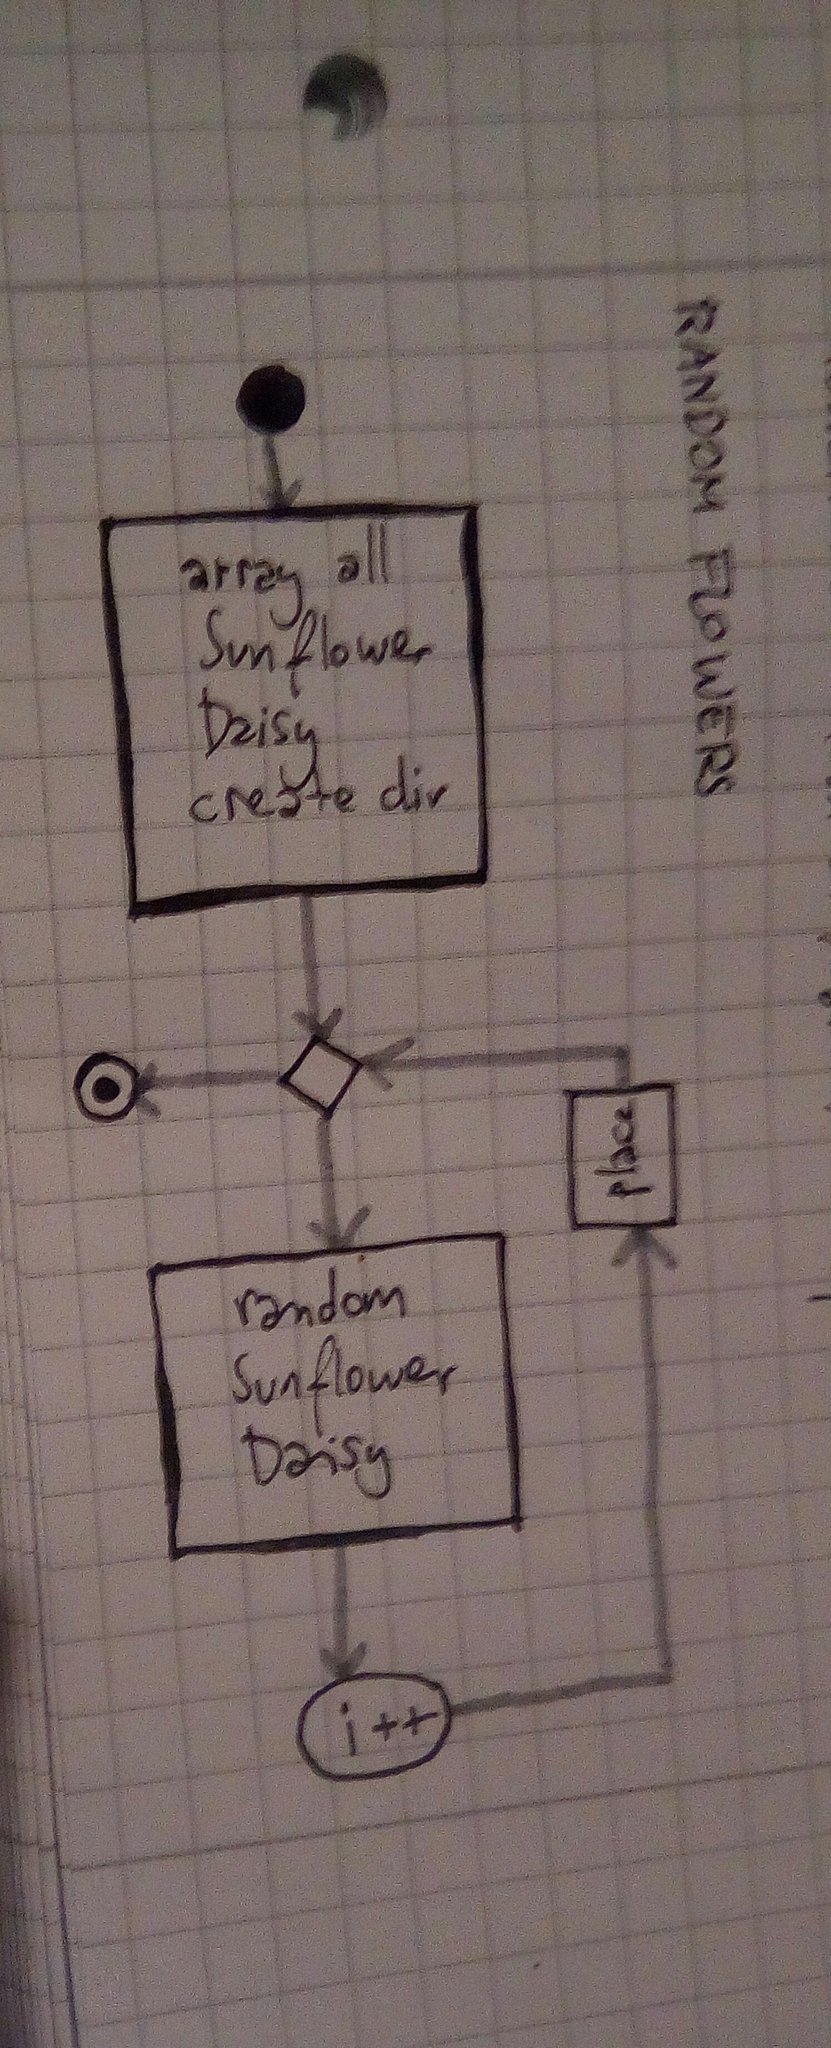 RANDOM FLOWERS
array all
Sunflower
Daisy
create dir
place
random
Sunflower
Daisy
i++